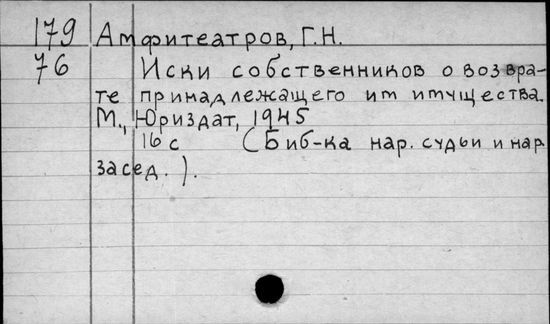 179 Амфитеатров, Г.Н.
76 Иски собственников о возвра-
те принадлежащего им имущества.
М., Юриздат, 1945
16 с (Биб-ка нар. судьи и нар.
засед.).